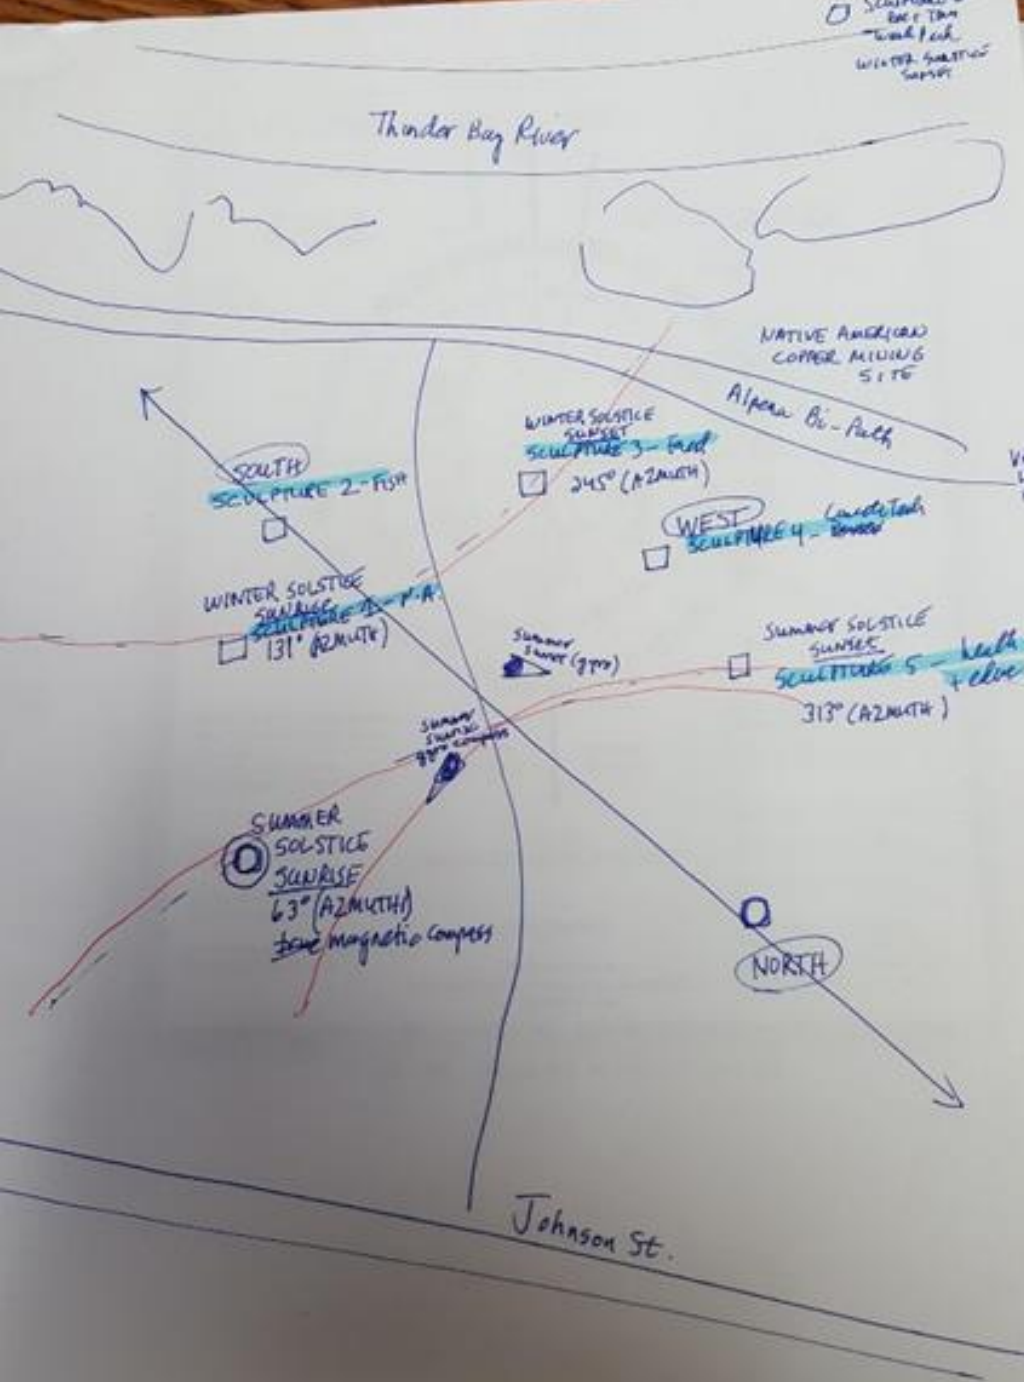 WINTER SOLSTICE
SUNSET
Thunder Bay River
NATIVE AMERICAN
COPPER MINING
SITE
Alpena Bi-Path
WINTER SOLSTICE
SUNSET
SCULPTURE 3 - Food
245° (AZMUTH)
SOUTH
SCULPTURE 2 - FISH
WEST
SCULPTURE 4 -
WINTER SOLSTICE
SUNRISE
SCULPTURE 1 - N.A.
131° (AZMUTH)
Summer
Sunset (gyro)
SUMMER SOLSTICE
SUNSET
SCULPTURE 5 - health
+ educ
313° (AZMUTH)
Summer
Sunrise
gyro compass
SUMMER
SOLSTICE
SUNRISE
63° (AZMUTH)
true magnetic compass
NORTH
Johnson St.